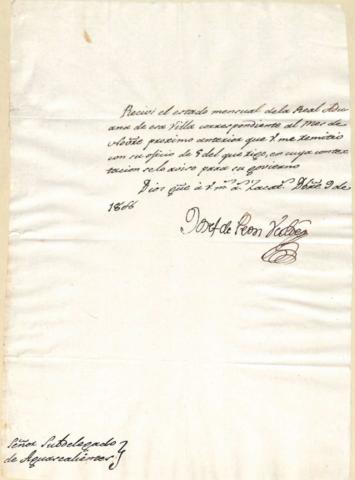 Recivi el estado mensual de la Real Adu
ana de esa Villa correspondiente al Mes de
proximo anterior que V. me remitió
con su oficio de 5 del que rige, en cuya contex
tacion se lo aviso para su govierno
Dios gûe à V. m.s a.s Zacat.s 9 de
Josef de Peon Valdes
Señor Subdelegado
de Aguascalientes